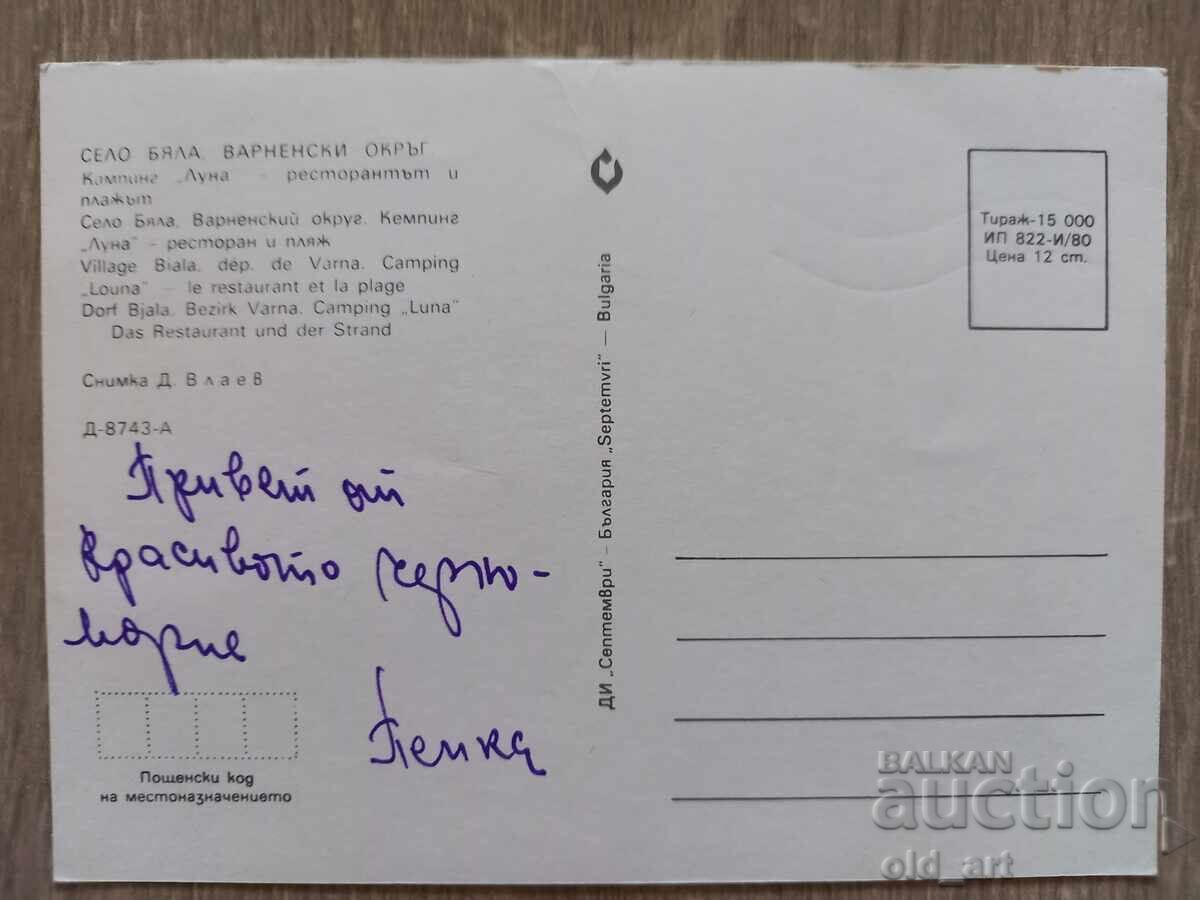 СЕЛО БЯЛА. ВАРНЕНСКИ ОКРЪГ.
Кампинг „Луна" – ресторантът и
плажът
Село Бяла, Варненский округ. Кемпинг
„Луна" – ресторан и пляж
Village Biala. dép. de Varna. Camping
„Louna" – le restaurant et la plage
Dorf Bjala. Bezirk Varna. Camping „Luna"
Das Restaurant und der Strand
Снимка Д. Влаев
Д-8743-А
Привет от
красивото черно-
морие
Пенка
Пощенски код
на местоназначението
ДИ „Септември" – България „Septemvri" — Bulgaria
Тираж-15 000
ИП 822-И/80
Цена 12 ст.
BALKAN
auction
old_art